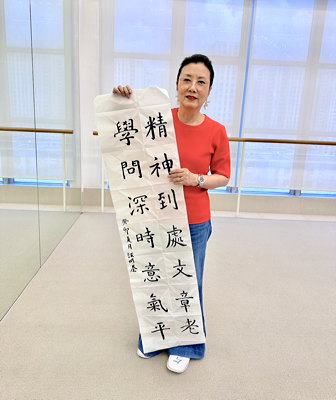 精神到處文章老
學問深時意氣平
癸卯夏月汪明荃